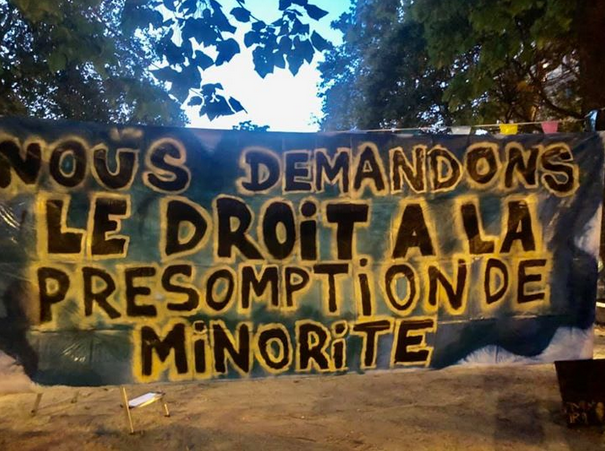 NOUS DEMANDONS
LE DROiT A LA
PRESOMPTiON DE
MiNORiTE